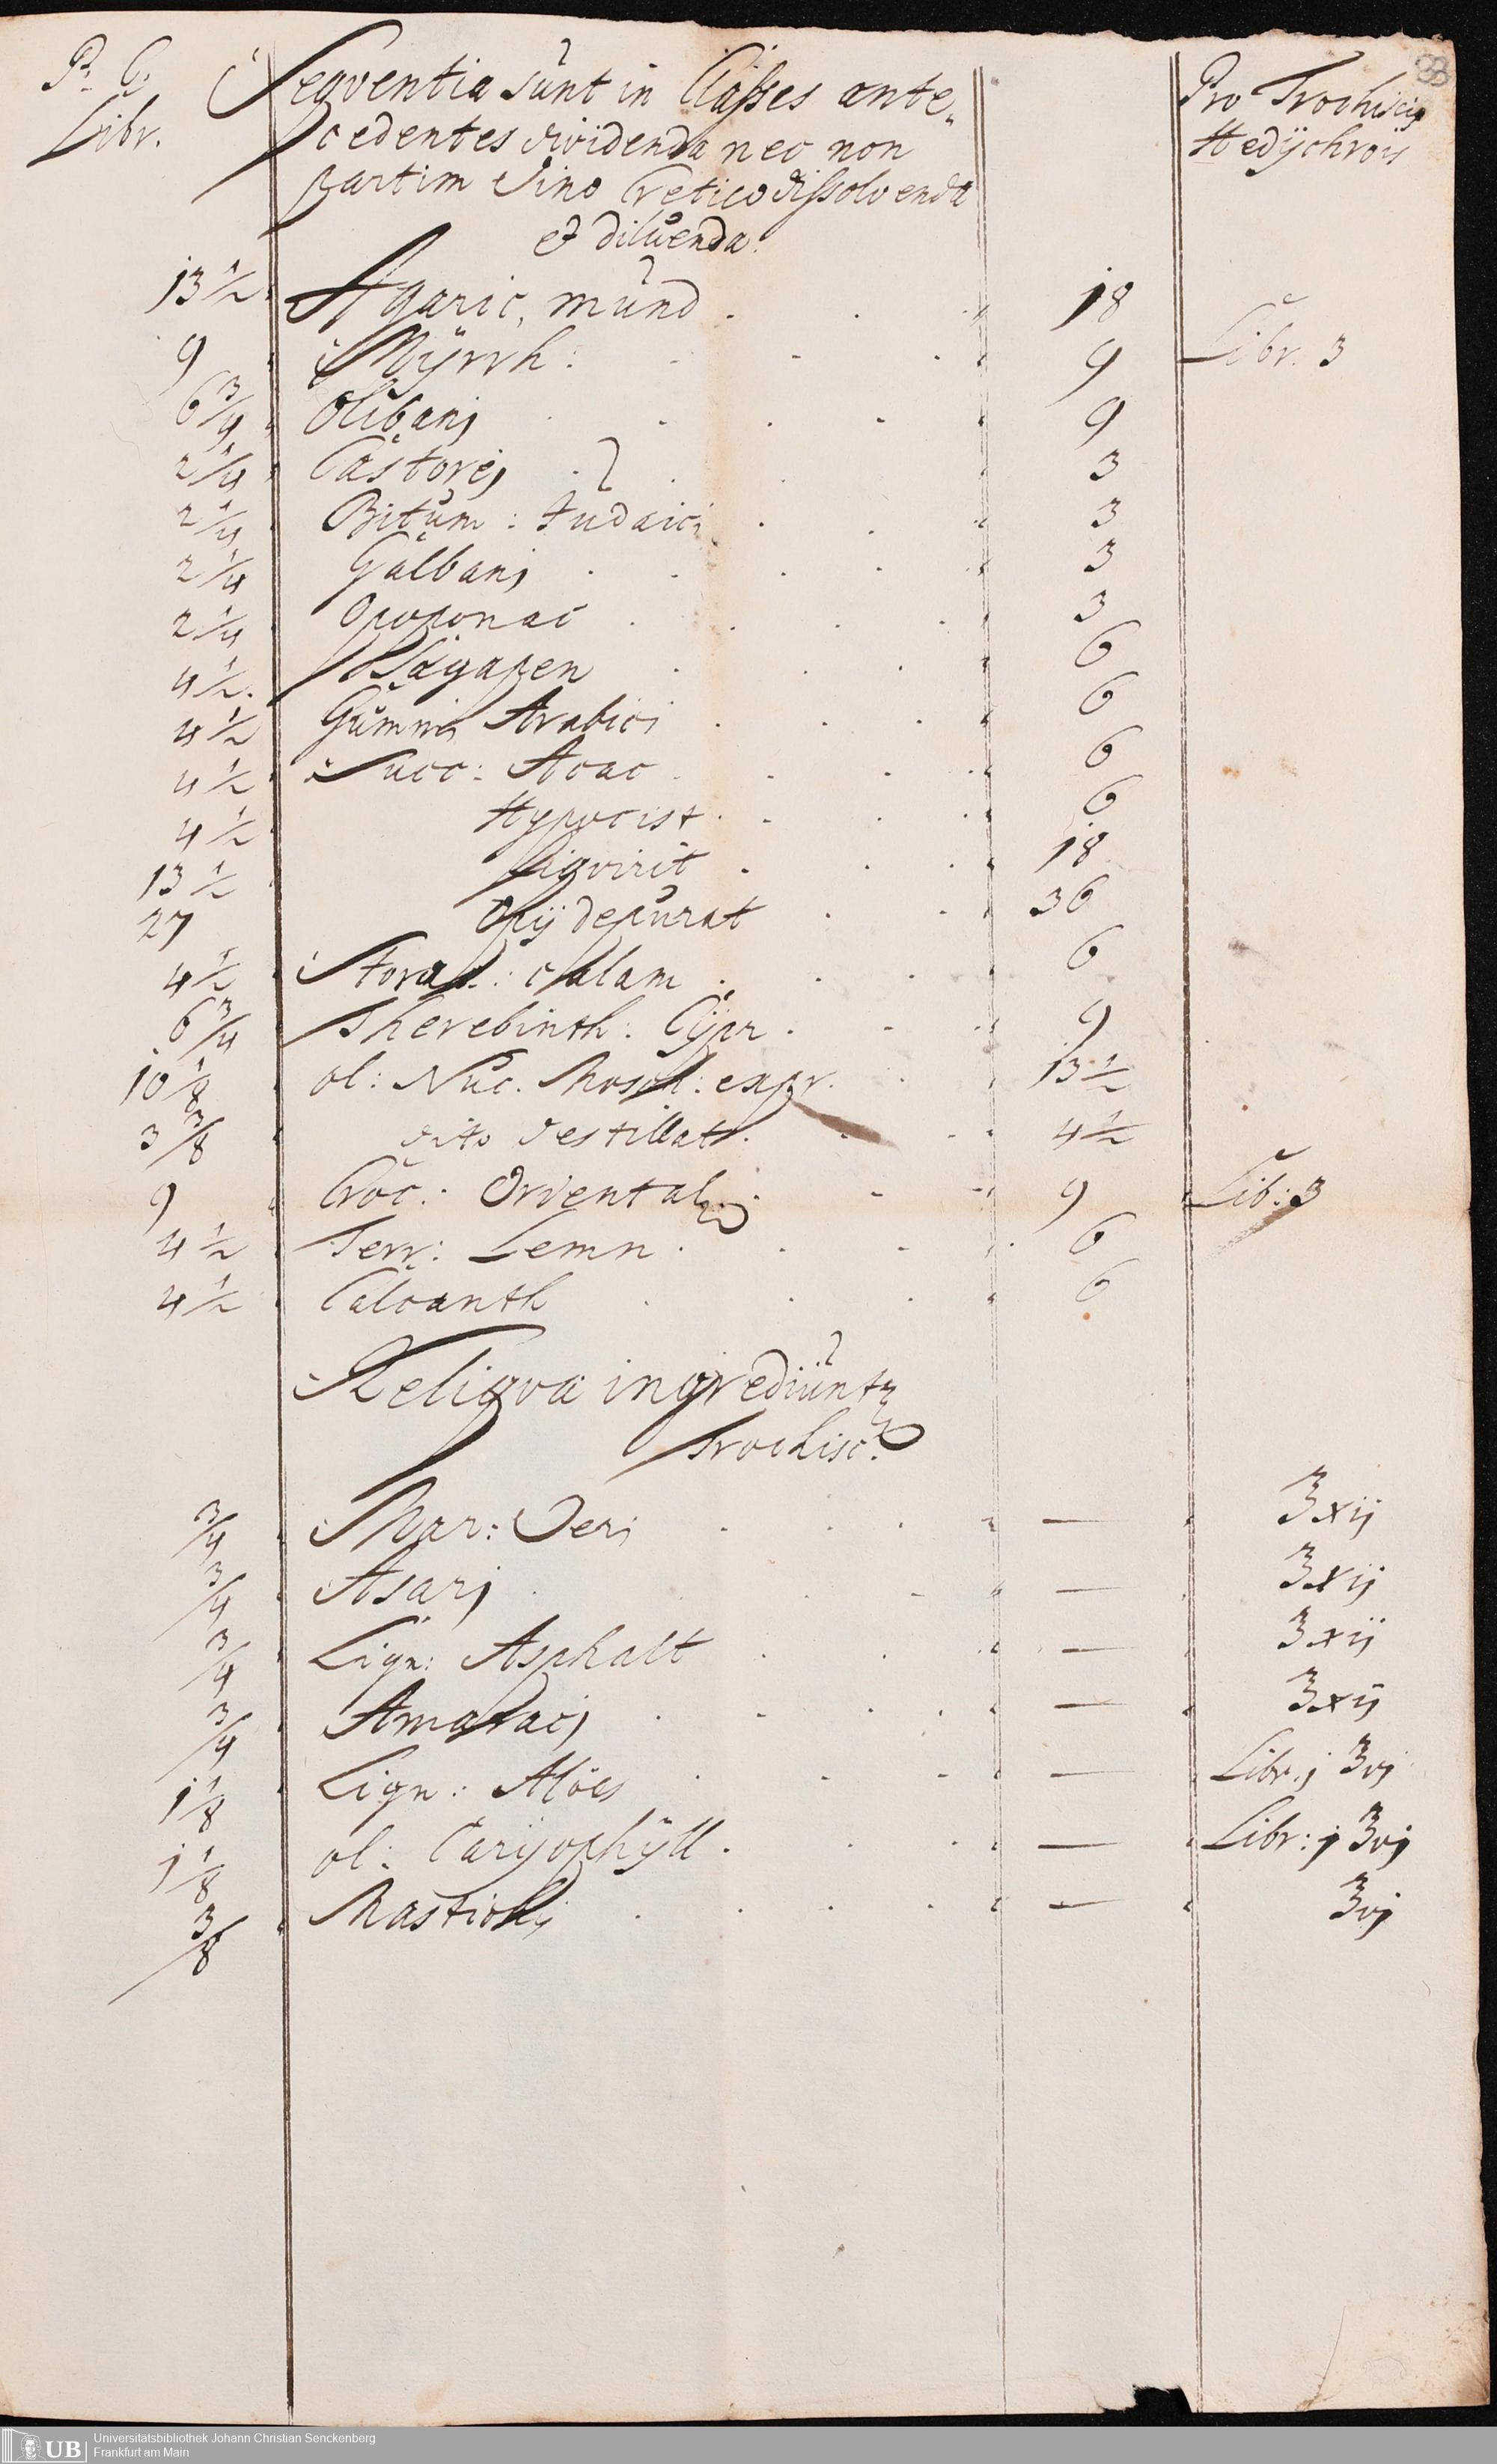 P. C. Seqventia sunt in Classes ante„ Pro Trochiscis 88
Libr. cedentes dividenda nec non Hedÿchroïs
partim Vino Cretico dissolvenda
et diluenda.
13 1/2 Agaric, mund . . . 18
9 Mÿrrh: - - . 9 Libr. 3
6 3/4 Olibanj . - . - 9
2 1/4 Castorej . . . 3
2 1/4 Bitum: Judaici . . 3
2 1/4 Galbanj . . . . 3
2 1/4 Opoponac . . . . 3
4 1/2. Sagapen . . . 6
4 1/2 Gummi Arabici . . . 6
4 1/2 Succ: Acac . - . 6
4 1/2 Hypocist . - . . 6
13 1/2 Liqvirit . . . 18
27 Opij depurat . . 36
4 1/2 Storac: calam . . . 6
6 3/4 Therebinth: Cÿpr . - - 9
10 1/8 ol: Nuc. Mosch: expr. . 13 1/2
3 3/8 dito destillat. - - 4 1/2
9 Croc: Oriental . - - 9 Lib: 3
4 1/2 Terr: Lemn . . - . 6
4 1/2 Calcanth . . . 6
Reliqva ingrediunt
Trochisc:
3/4 Mar: Veri . . . — ℥xij
3/4 Asarj . . - — ℥xij
3/4 Lign: Asphalt . . . — ℥xij
3/4 Amaracj . - . . — ℥xij
1 1/8 Lign: Aloës . - - — Libr. j ℥vj
1 1/8 ol: Carÿophÿll . . . — Libr: j ℥vj
3/8 Mastichj . . . . — ℥vj
UB Universitätsbibliothek Johann Christian Senckenberg
Frankfurt am Main